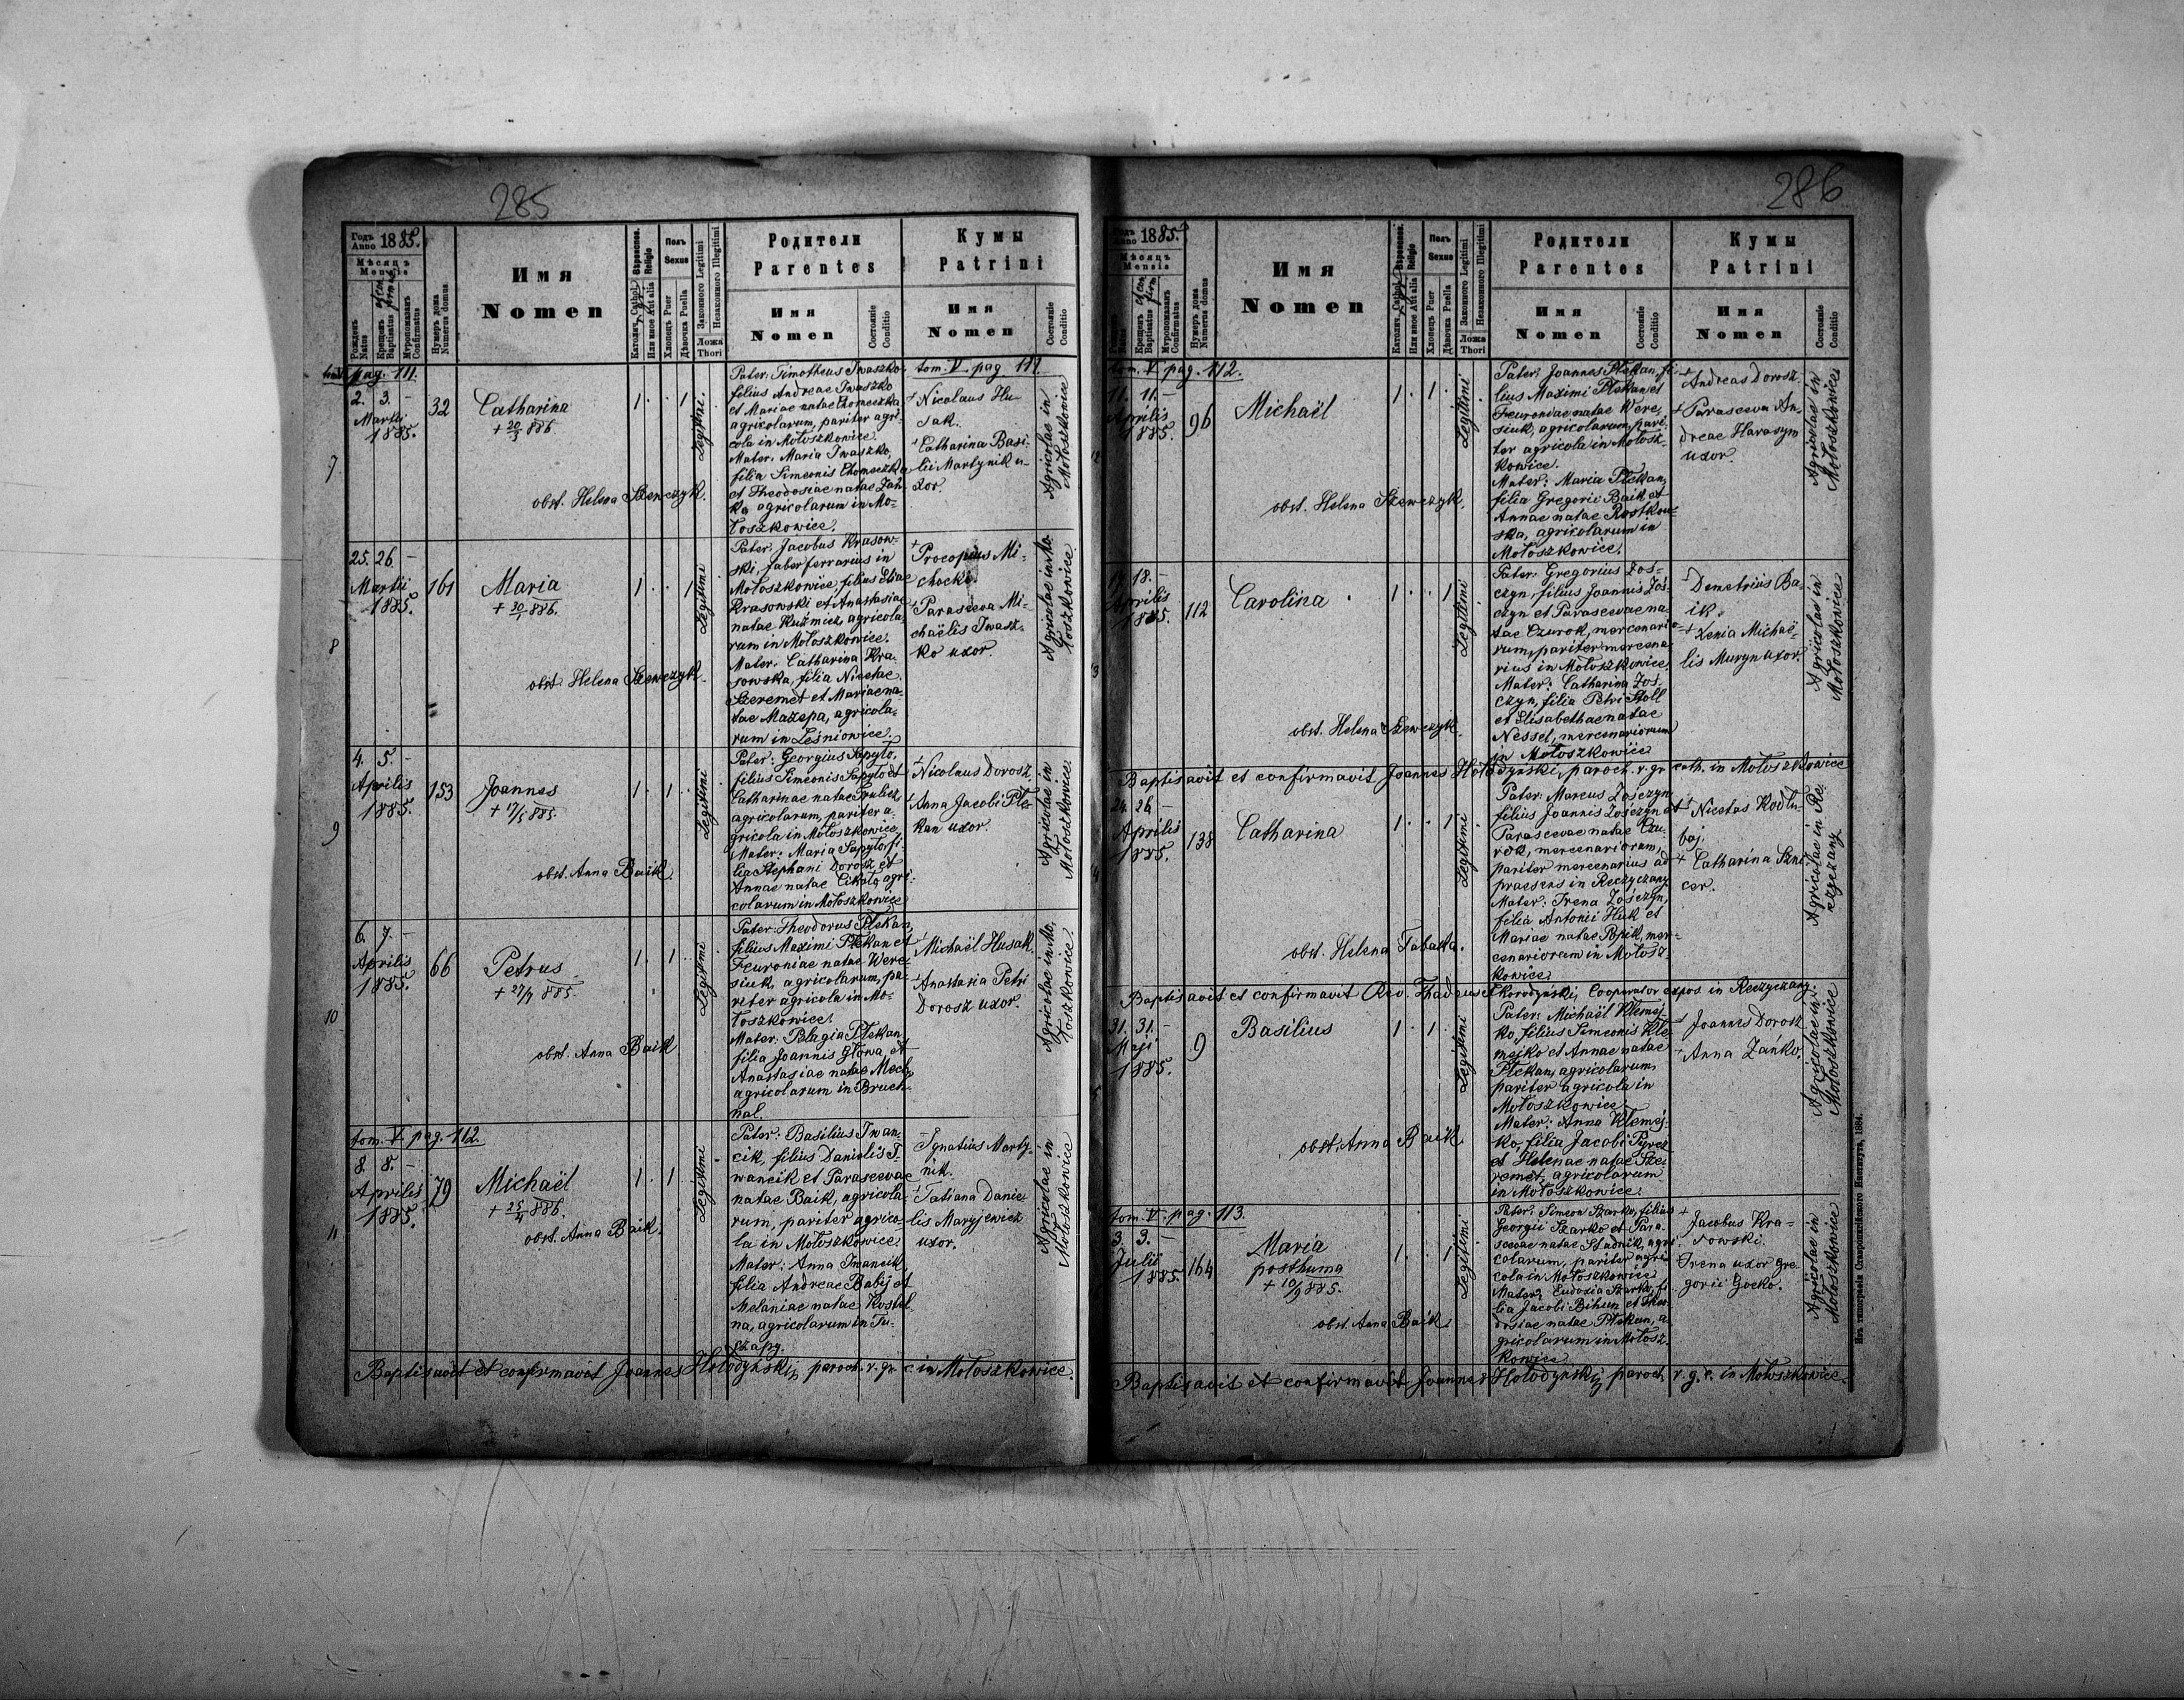 285
Годъ Anno 1885.
Мѣсяцъ Mensis
Рожденъ Natus
Крещенъ Baptisatus
et con firm.
Мѵропомазанъ Confirmatus
Нумеръ дома Numerus domus
Имя Nomen
Religio
Католич. Cathol.
Или иное Aut alia
Полъ Sexus
Хлопецъ Puer
Дѣвочка Puella
Законного Legitimi
Незаконного Illegitimi
Ложа Thori
Родители Parentes
Имя Nomen
Состояніе Conditio
Кумы Patrini
Имя Nomen
Состояніе Conditio
pag. 111.
tom. V. pag. 111.
7
2. 3. -
Martii
1885.
32
Catharina
+ 20/3 886.
1 . . 1
Legitimi.
obst. Helena Szewczyk.
Pater: Timotheus Iwaszko
filius Andreae Iwaszko
et Mariae natae Chomeczka
agricolarum, pariter agri-
cola in Mołoszkowice.
Mater: Maria Iwaszko,
filia Simeonis Chomeczka
et Theodosiae natae Zań-
ko, agricolarum in Mo-
łoszkowice.
+ Nicolaus Hu-
sak.
+ Catharina Basi-
lii Martynik u-
xor.
Agricolae in
Mołoszkowice
8
25. 26. -
Martii
1885.
161
Maria
+ 30/1 886.
1 . . 1
Legitimi
obst. Helena Szewczyk.
Pater: Jacobus Krasow-
ski, faber ferrarius in
Mołoszkowice, filius Eliae
Krasowski et Anastasiae
natae Kuźmicz, agricola-
rum in Mołoszkowice.
Mater: Catharina Kra-
sowska, filia Nicetae
Szeremet et Mariae na-
tae Mazepa, agricola-
rum in Leśniowice.
+ Procopius Mi-
chocki.
+ Parasceva Mi-
chaëlis Iwasz-
ko uxor.
Agricolae in Mo-
łoszkowice.
9
4. 5. -
Aprilis
1885.
153
Joannes
+ 17/5 885.
1 . 1 .
Legitimi
obst. Anna Baik.
Pater: Georgius Sapyło,
filius Simeonis Sapyło et
Catharinae natae
agricolarum, pariter a-
gricola in Mołoszkowice.
Mater: Maria Sapyło, fi-
lia Stephani Dorosz et
Annae natae Cikało, agri-
colarum in Mołoszkowice
+ Nicolaus Dorosz.
+ Anna Jacobi Płe-
kan uxor.
Agricolae in
Mołoszkowice.
10
6. 7. -
Aprilis
1885.
66
Petrus
+ 27/7 885.
1 . 1 .
Legitimi
obst. Anna Baik
Pater: Theodorus Płekan,
filius Maximi Płekan et
Feuroniae natae Were-
siuk, agricolarum, pa-
riter agricola in Mo-
łoszkowice.
Mater: Pelagia Płekan
filia Joannis Głowa, et
Anastasiae natae
agricolarum in Bruch-
nal.
Michaël Husak.
+ Anastasia Petri
Dorosz uxor.
Agricolae in Mo-
łoszkowice.
tom. V. pag. 112.
11
8. 8. -
Aprilis
1885.
79
Michaël
+ 25/4 886.
1 . 1 .
Legitimi
obst. Anna Baik.
Pater: Basilius Iwan-
cik, filius Danielis I-
wancik et Parascevae
natae Baik, agricola-
rum, pariter agrico-
la in Mołoszkowice.
Mater: Anna Iwancik,
filia Andreae Babij et
Melaniae natae Kostel-
na, agricolarum in Tu-
czapy.
Ignatius Marty-
nik.
+ Tatiana Danie-
lis Maryjewicz
uxor.
Agricolae in
Mołoszkowice
Baptisavit et confirmavit Joannes Hołodyński, paroch. r. gr. c. in Mołoszkowice.
286
Anno 1885.
Мѣсяцъ Mensis
Natus
Крещенъ Baptisatus
et con firm.
Мѵропомазанъ Confirmatus
Нумеръ дома Numerus domus
Имя Nomen
Religio
Католич. Cathol.
Или иное Aut alia
Полъ Sexus
Хлопецъ Puer
Дѣвочка Puella
Законного Legitimi
Незаконного Illegitimi
Ложа Thori
Родители Parentes
Имя Nomen
Состояніе Conditio
Кумы Patrini
Имя Nomen
Состояніе Conditio
tom. V. pag. 112.
11. 11. -
Aprilis
1885.
96
Michaël
1 . 1 .
Legitimi
obst. Helena Szewczyk.
Pater: Joannes Płekan, fi-
lius Maximi Płekan et
Feuroniae natae Were-
siuk, agricolarum, pari-
ter agricola in Mołosz-
kowice.
Mater: Maria Płekan,
filia Gregorii Baik et
Annae natae Rostkow-
ska, agricolarum in
Mołoszkowice.
+ Andreas Dorosz.
+ Parasceva An-
dreae Harasym
uxor.
Agricolae in
Mołoszkowice
18. -
Aprilis
1885.
112
Carolina
1 . . 1
Legitimi
obst. Helena Szewczyk.
Pater: Gregorius Zoś-
czyn, filius Joannis Zoś-
czyn et Parascevae na-
tae Czurok, mercenario-
rum, pariter mercena-
rius in Mołoszkowice.
Mater: Catharina Zoś-
czyn, filia Petri Stoll
et Elisabethae natae
Nessel, mercenariorum
in Mołoszkowice
+ Demetrius Ba-
ik.
+ Xenia Michaë-
lis Muryn uxor.
Agricolae in
Mołoszkowice
Baptisavit et confirmavit Joannes Hołodyński, paroch. r. gr. cath. in Mołoszkowice
24. 26. -
Aprilis
1885.
138
Catharina
1 . . 1
Legitimi
obst. Helena Tabaka.
Pater: Marcus Zośczyn,
filius Joannis Zośczyn et
Parascevae natae Czu-
rok, mercenariorum,
pariter mercenarius ad
praesens in Reczyczany
Mater: Irena Zośczyn,
filia Antonii Huk et
Mariae natae Bpik, mer-
cenariorum in Mołosz-
kowice.
+ Nicetas Kodłu-
baj.
+ Catharina Szni-
cer.
Agricolae in Re-
czyczany
Baptisavit et confirmavit Rev. Thadeus Skorodyński, Cooperator expos. in Reczyczany.
31. 31. -
Maji
1885.
9
Basilius
1 . 1 .
Legitimi
obst. Anna Baik
Pater: Michaël Klemej-
ko, filius Simeonis Kle-
mejko et Annae natae
Płekan, agricolarum,
pariter agricola in
Mołoszkowice.
Mater: Anna Klemej-
ko, filia Jacobi Pyrcz
et Helenae natae Sze-
remet, agricolarum
in Mołoszkowice.
Joannes Dorosz
Anna Zańko.
Agricolae in
Mołoszkowice
tom. V. pag. 113.
3. 3. -
Julii
1885.
164
Maria
posthuma
+ 10/9 885.
1 . . 1
Legitimi
obst. Anna Baik.
Pater: Simeon Szarko, filius
Georgii Szarko et Para-
scevae natae Studnik, agri-
colarum, pariter agri-
cola in Mołoszkowice
Mater: Eudoxia Szarko, fi-
lia Jacobi Bihun et Theo-
dosiae natae Płekan, a-
gricolarum in Mołosz-
kowice.
+ Jacobus Kra-
sowski.
Irena uxor Gre-
gorii Gocko.
Agricolae in
Mołoszkowice
Baptisavit et confirmavit Joannes Hołodyński, paroch. r. g. c. in Mołoszkowice.
Изъ типографіи Ставропигійского Института, 1884.